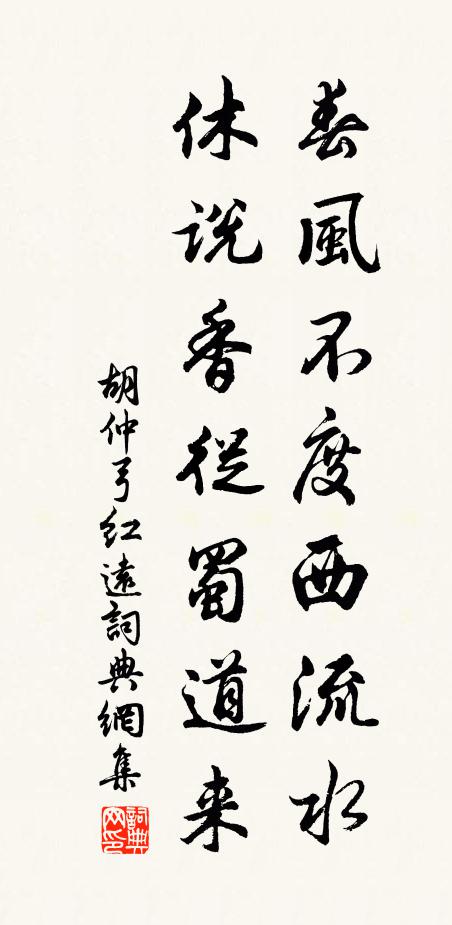 春風不度西流水
休説香從蜀道来
胡仲弓红遠詞典網集
詞典网印